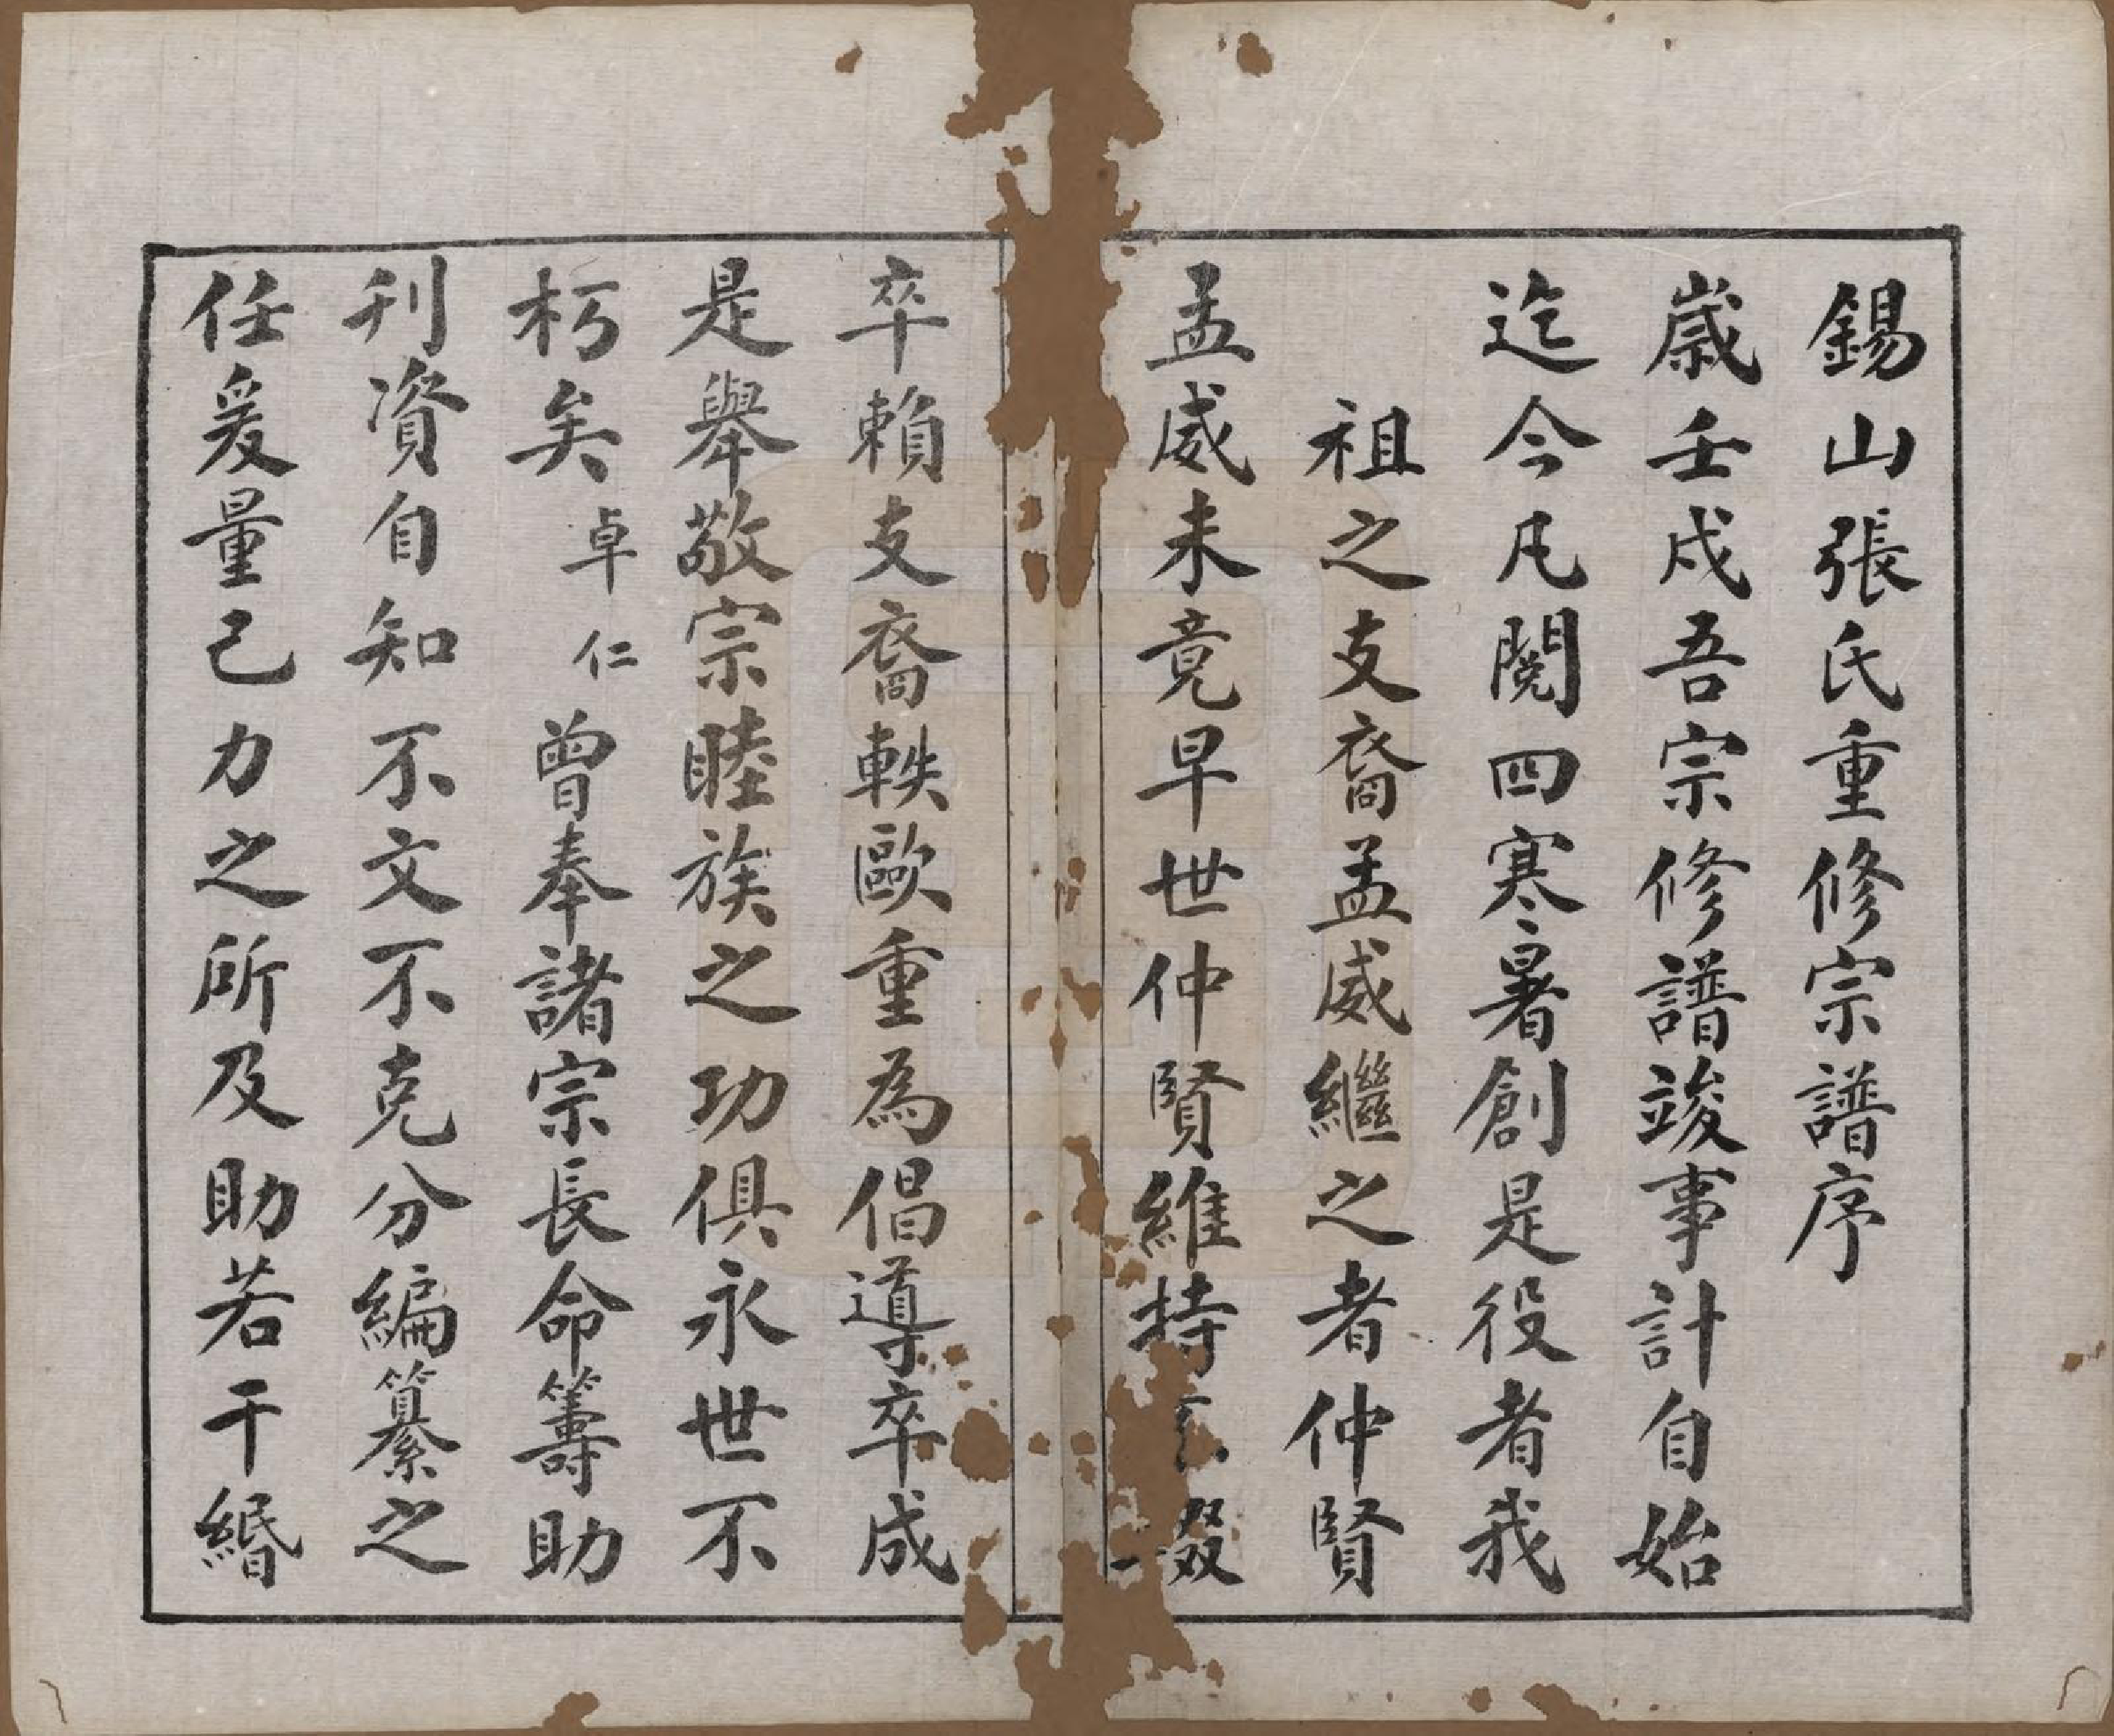 錫山張氏重修宗譜序
歲壬戌吾宗修譜竣事計自始
迄今凡閱四寒暑創是役者我
祖之支裔孟威繼之者仲賢
孟威未竟早世仲賢維持
卒賴支裔軼歐重為倡導卒成
是舉敬宗睦族之功俱永世不
朽矣卓仁曾奉諸宗長命籌助
刊資自知不文不克分編纂之
任爰量己力之所及助若干緡